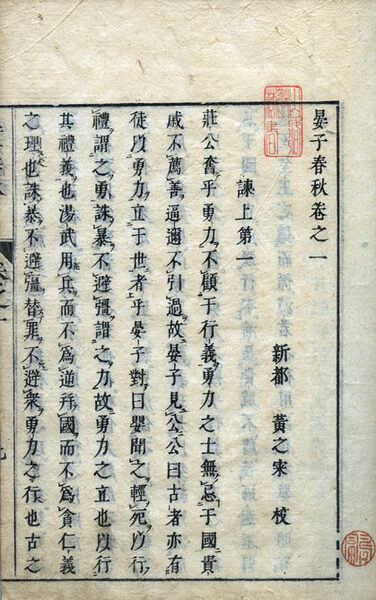 晏子春秋卷之一
新都 黃之寀 校
諫上第一
莊公奮乎勇力不顧于行義勇力之士無忌于國貴
戚不薦善逼邇不引過故晏子見公公曰古者亦有
徒以勇力立于世者乎晏子對曰嬰聞之輕死以行
禮謂之勇誅暴不避彊謂之力故勇力之立也以行
其禮義也湯武用兵而不爲逆并國而不爲貪仁義
之理也誅暴不避彊替罪不避衆勇力之行也古之